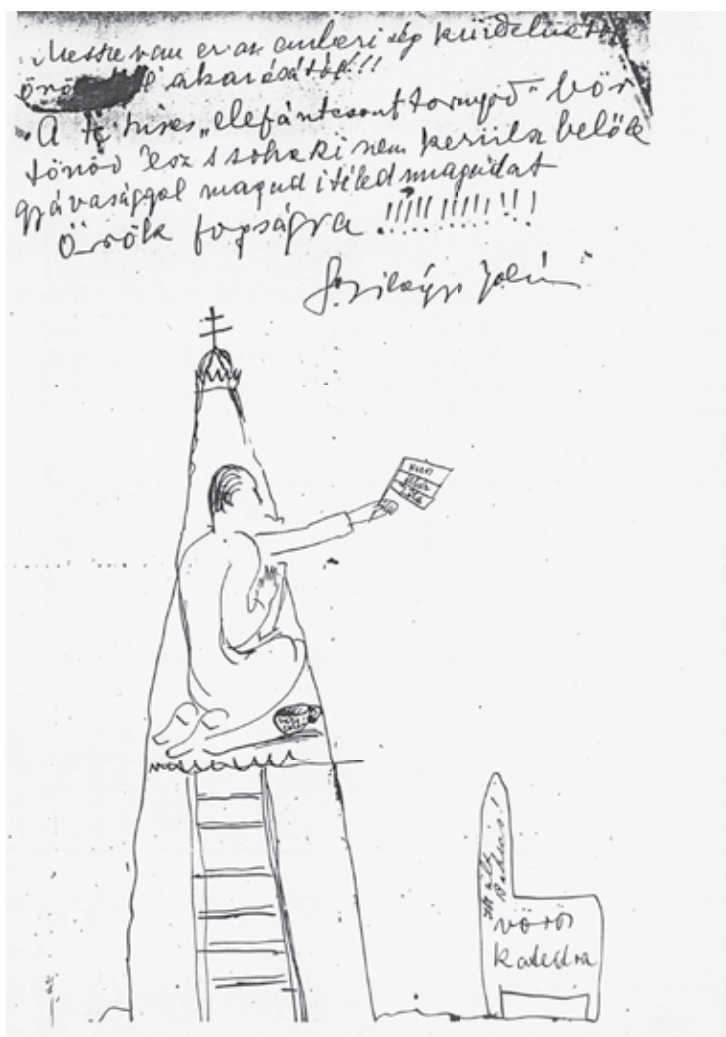 Messze van ez az emberiség küzdelmétől
akarásától!!!
A te híres „elefántcsont tornyod" bör
tönöd lesz s soha ki nem kerülsz belőle
gyávasággal magad ítéled magadat
Örök fogságra !!!!!!!!!!!
Szilágyi Jolán
vörös
Katedra